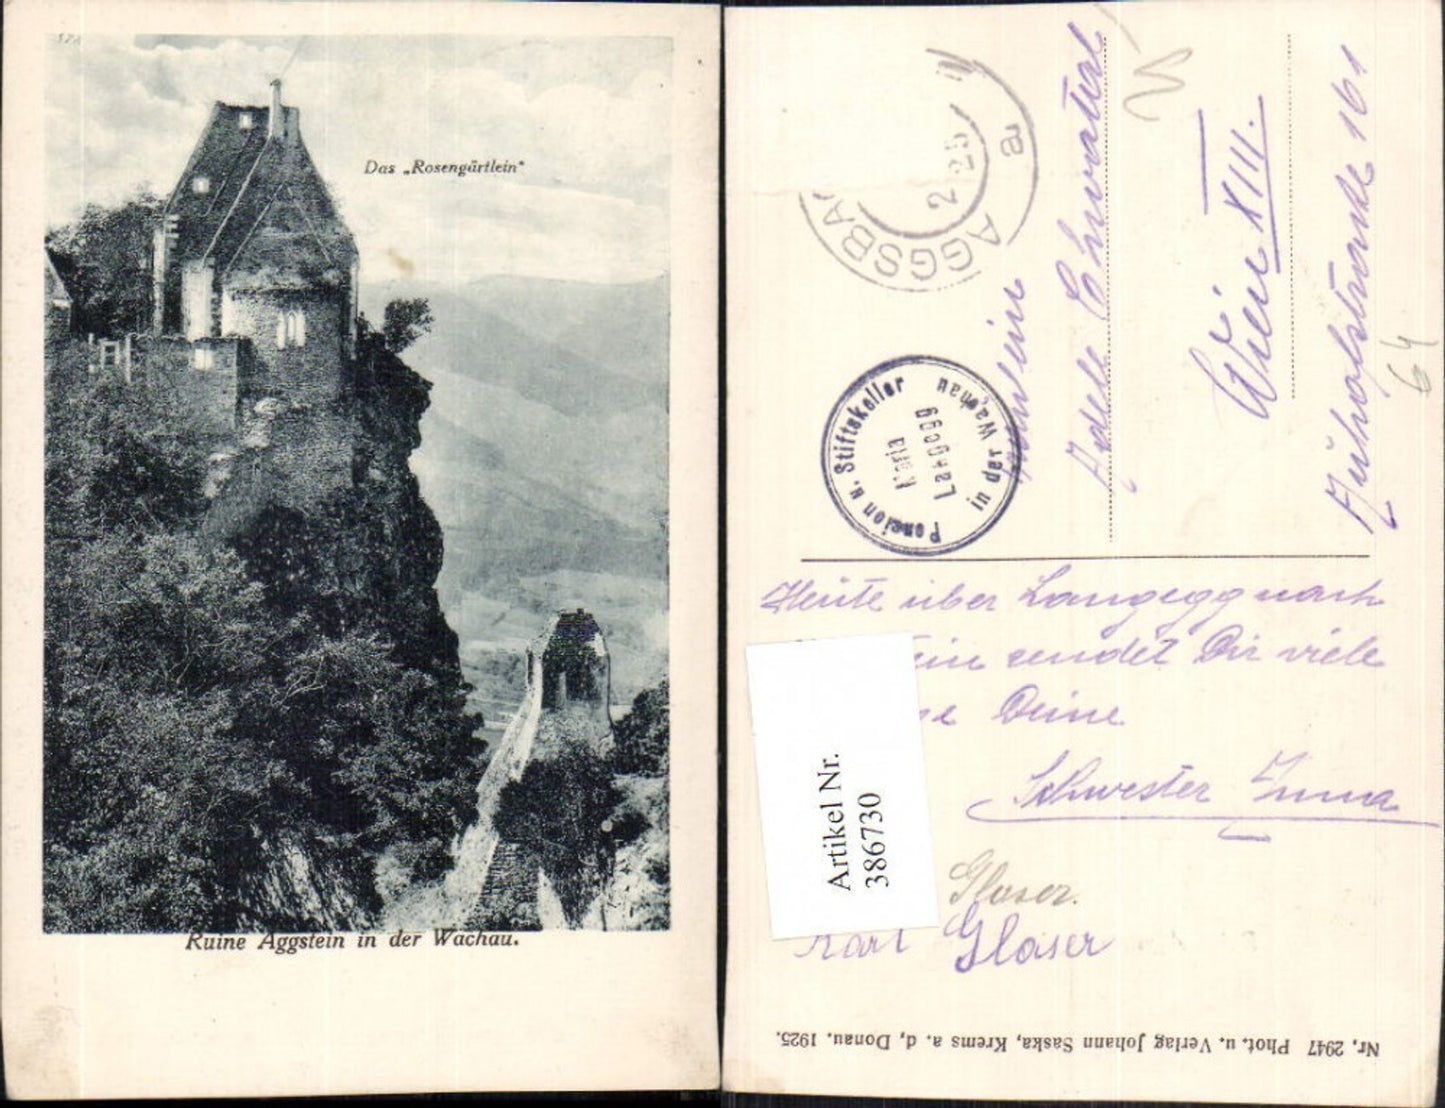 Das „Rosengärtlein"
Ruine Aggstein in der Wachau.
AGGSBA
2 25
a
Adele
Wien XIII.
Auhofstrasse 161
64
Pension u. Stiftskeller
Maria
Langegg
in der Wachau
Heute über Langegg nach
ein sendet Dir viele
se Deine
Schwester Inna
Gloser.
Karl Gloser
Artikel Nr.
386730
Nr. 2947 Phot. u. Verlag Johann Saska, Krems a. d. Donau. 1925.